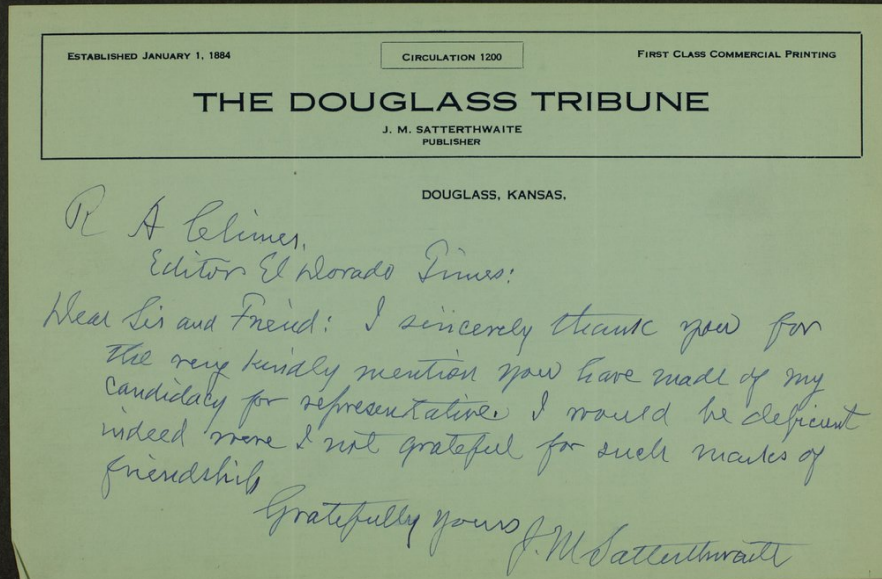 ESTABLISHED JANUARY 1, 1884
CIRCULATION 1200
FIRST CLASS COMMERCIAL PRINTING
THE DOUGLASS TRIBUNE
J. M. SATTERTHWAITE
PUBLISHER
DOUGLASS, KANSAS.
R A Clymer,
Editor El Dorado Times:
Dear Sir and Friend: I sincerely thank you for
the very kindly mention you have made of my
candidacy for representative. I would be deficient
indeed were I not grateful for such marks of
friendship
Gratefully yours
J. M Satterthwaite